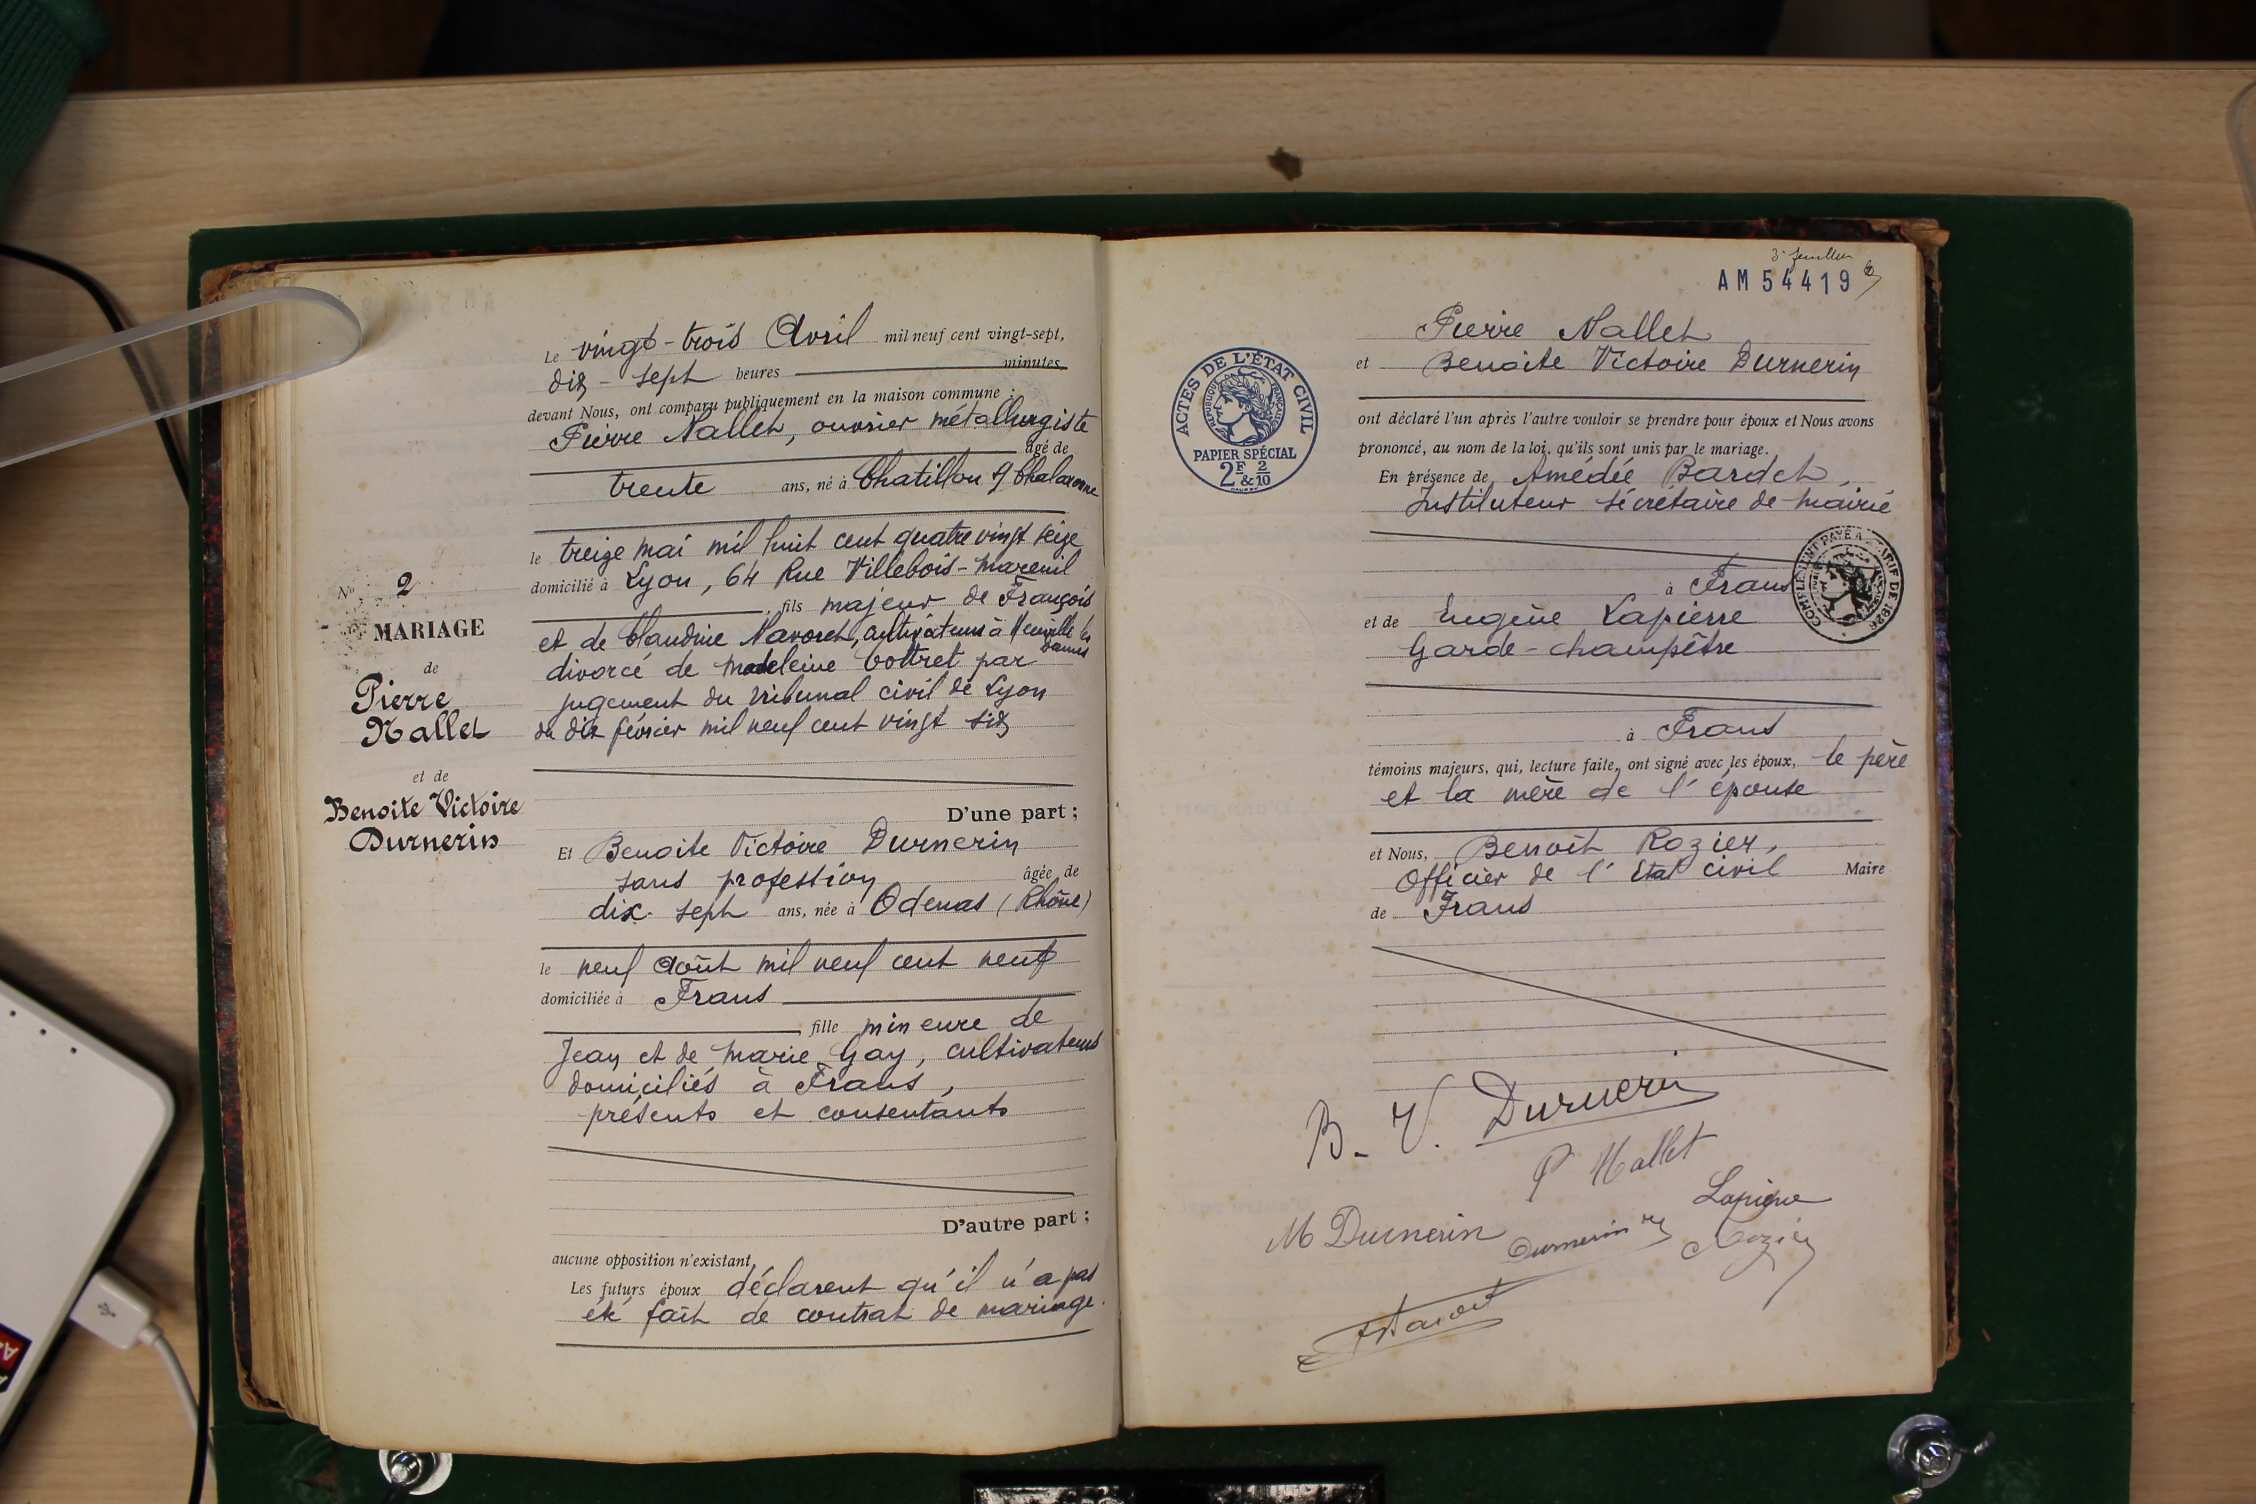 Nº 2
MARIAGE
de
Pierre
Nallet
et de
Benoite Victoire
Durnerin
Le vingt-trois Avril mil neuf cent vingt-sept,
dix-sept heures minutes
devant Nous, ont comparu publiquement en la maison commune :
Pierre Nallet, ouvrier métallurgiste
âgé de
trente ans, né à Chatillon s/ Chalaronne
le treize mai mil huit cent quatre vingt seize
domicilié à Lyon, 64 Rue Villebois-Mareuil
fils majeur de François
et de Claudine Navoret, cultivateurs à Neuville les
Dames
divorcé de Madeleine Cottret par
jugement du tribunal civil de Lyon
du dix février mil neuf cent vingt six
D'une part ;
Et Benoite Victoire Durnerin
sans profession âgée de
dix-sept ans, née à Odenas (Rhône)
le neuf août mil neuf cent neuf
domiciliée à Frans
fille mineure de
Jean et de Marie Gay, cultivateurs
domiciliés à Frans,
présents et consentants
D'autre part ;
aucune opposition n'existant,
Les futurs époux déclarent qu'il n'a pas
été fait de contrat de mariage.
AM 54419
ACTES DE L'ÉTAT CIVIL
RÉPUBLIQUE FRANÇAISE
PAPIER SPÉCIAL
2F & 2/10
Pierre Nallet
et Benoite Victoire Durnerin
ont déclaré l'un après l'autre vouloir se prendre pour époux et Nous avons
prononcé, au nom de la loi, qu'ils sont unis par le mariage.
En présence de Amédée Bardet,
Instituteur sécrétaire de mairie
à Frans
COMPLEMENT PAYÉ TARIF DE 1926
et de Eugène Lapierre
Garde-champêtre
à Frans
témoins majeurs, qui, lecture faite, ont signé avec les époux, le père
et la mère de l'épouse
et Nous, Benoît Rozier,
Officier de l'Etat civil Maire
de Frans
B. V. Durnerin
P Nallet
Lapierre
M Durnerin
Durnerin
Rozier